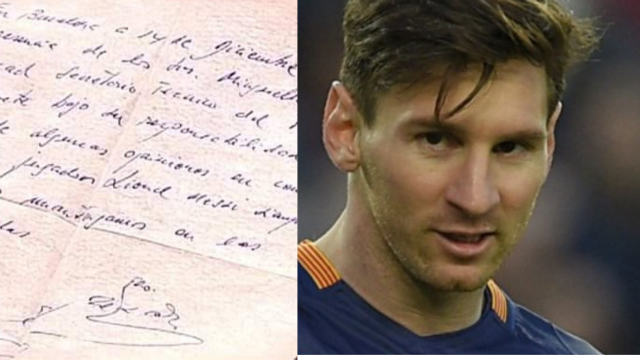 En Barcelona a 14 de Diciembre
esencia de los Srs. Minguella
Secretario Tecnico del F
ete bajo su responsabilidad
de algunas opiniones en con
jugador Lionel Messi siemp
mantengamos en las
das